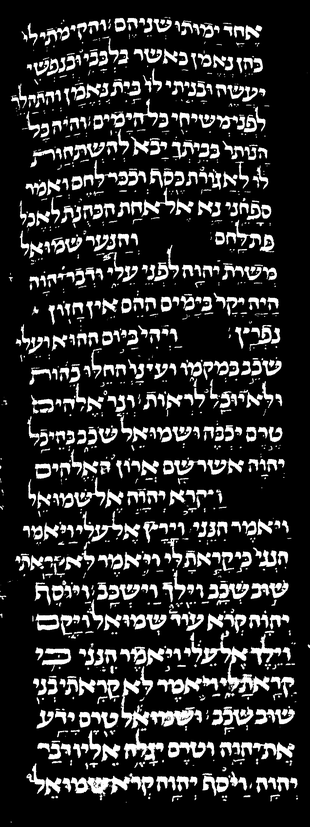 אחד ימותו שניהם והקימתי לי
כהן נאמן כאשר בלבבי ובנפשי
יעשה ובניתי לו בית נאמן והתהלך
לפני משיחי כל הימים והיה כל
הנותר בביתך יבא להשתחות
לו לאגורת כסף וככר לחם ואמר
ספחני נא אל אחת הכהנת לאכל
פת לחם והנער שמואל
משרת יהוה לפני עלי ודבר יהוה
היה יקר בימים ההם אין חזון
נפרץ ויהי ביום ההוא ועלי
שכב במקמו ועינו החלו כהות
לא יוכל לראות ונר אלהים
טרם יכבה ושמואל שכב בהיכל
יהוה אשר שם ארון האלהים
ויקרא יהוה אל שמואל
ויאמר הנני וירץ אל עלי ויאמר
הנני כי קראת לי ויאמר לא קראתי
שוב שכב וילך וישכב ויוסף
יהוה קרא עוד שמואל ויקם
וילך אל עלי ויאמר הנני כי
קראת לי ויאמר לא קראתי בני
שוב שכב ושמואל טרם ידע
את יהוה וטרם יגלה אליו דבר
יהוה ויסף יהוה קרא שמואל